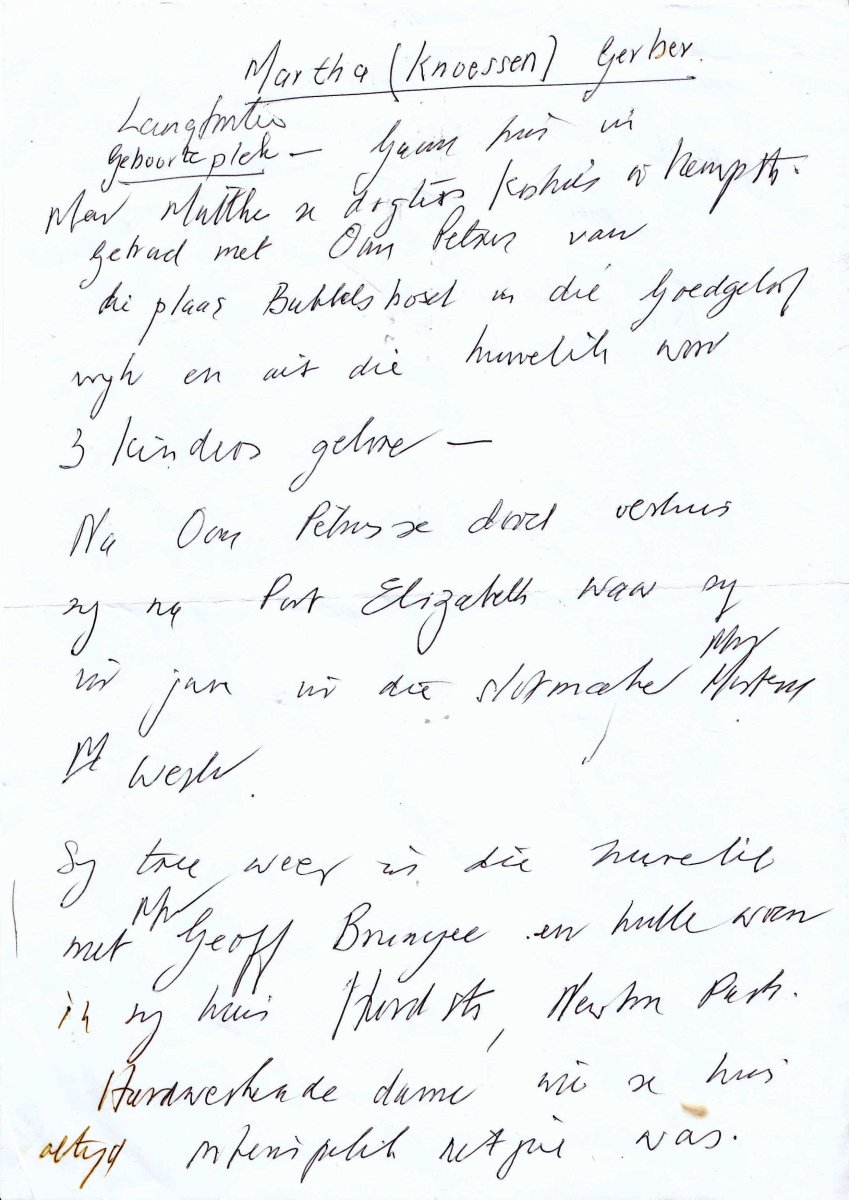 Martha (Knoessen) Gerber.
Geboorteplek — Gaan huis in
Mev Matthe se dogters Koshuis in Kempth.
Getrad met Oom Petrus van
die plaas Bubbelshoek in die Goedgeloof
wyk en uit die huwelik word
3 kinders gebore —
Na Oom Petrus se dood verhuis
sy na Port Elizabeth waar sy
vir jare vir die slotmaker
Mnr
werk.
Sy tree weer in die huwelik
Mnr
met Geoff en hulle woon
in sy huis Hurd str, Newton Park.
Hardwerkende dame wie se huis
altyd netjies was.